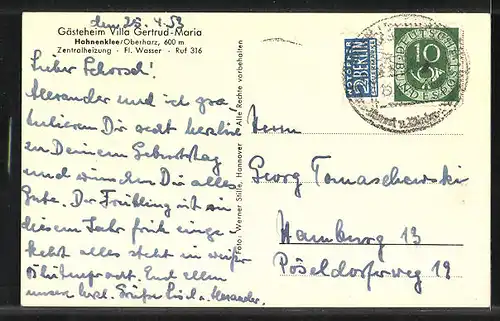 den 25.4.53
Gästeheim Villa Gertrud-Maria
Hahnenklee/Oberharz, 600 m
Zentralheizung - Fl. Wasser - Ruf 316
Lieber Schorsch!
Alexander und ich gra-
tulieren Dir recht herzlich
zu Deinem Geburtstag
und wünschen Dir alles
Gute. Der Frühling ist in
diesem Jahr früh einge-
kehrt alles steht in weißer
Blütenpracht. Euch allen
unsere herzl. Grüße Lisel u. Alexander.
Foto: Werner Stille, Hannover
Alle Rechte vorbehalten
NOTOPFER
2 BERLIN
STEUERMARKE
DEUTSCHE BUNDESPOST
10
Herrn
Georg Tomaschewski
Hamburg 13
Pöseldorferweg 19